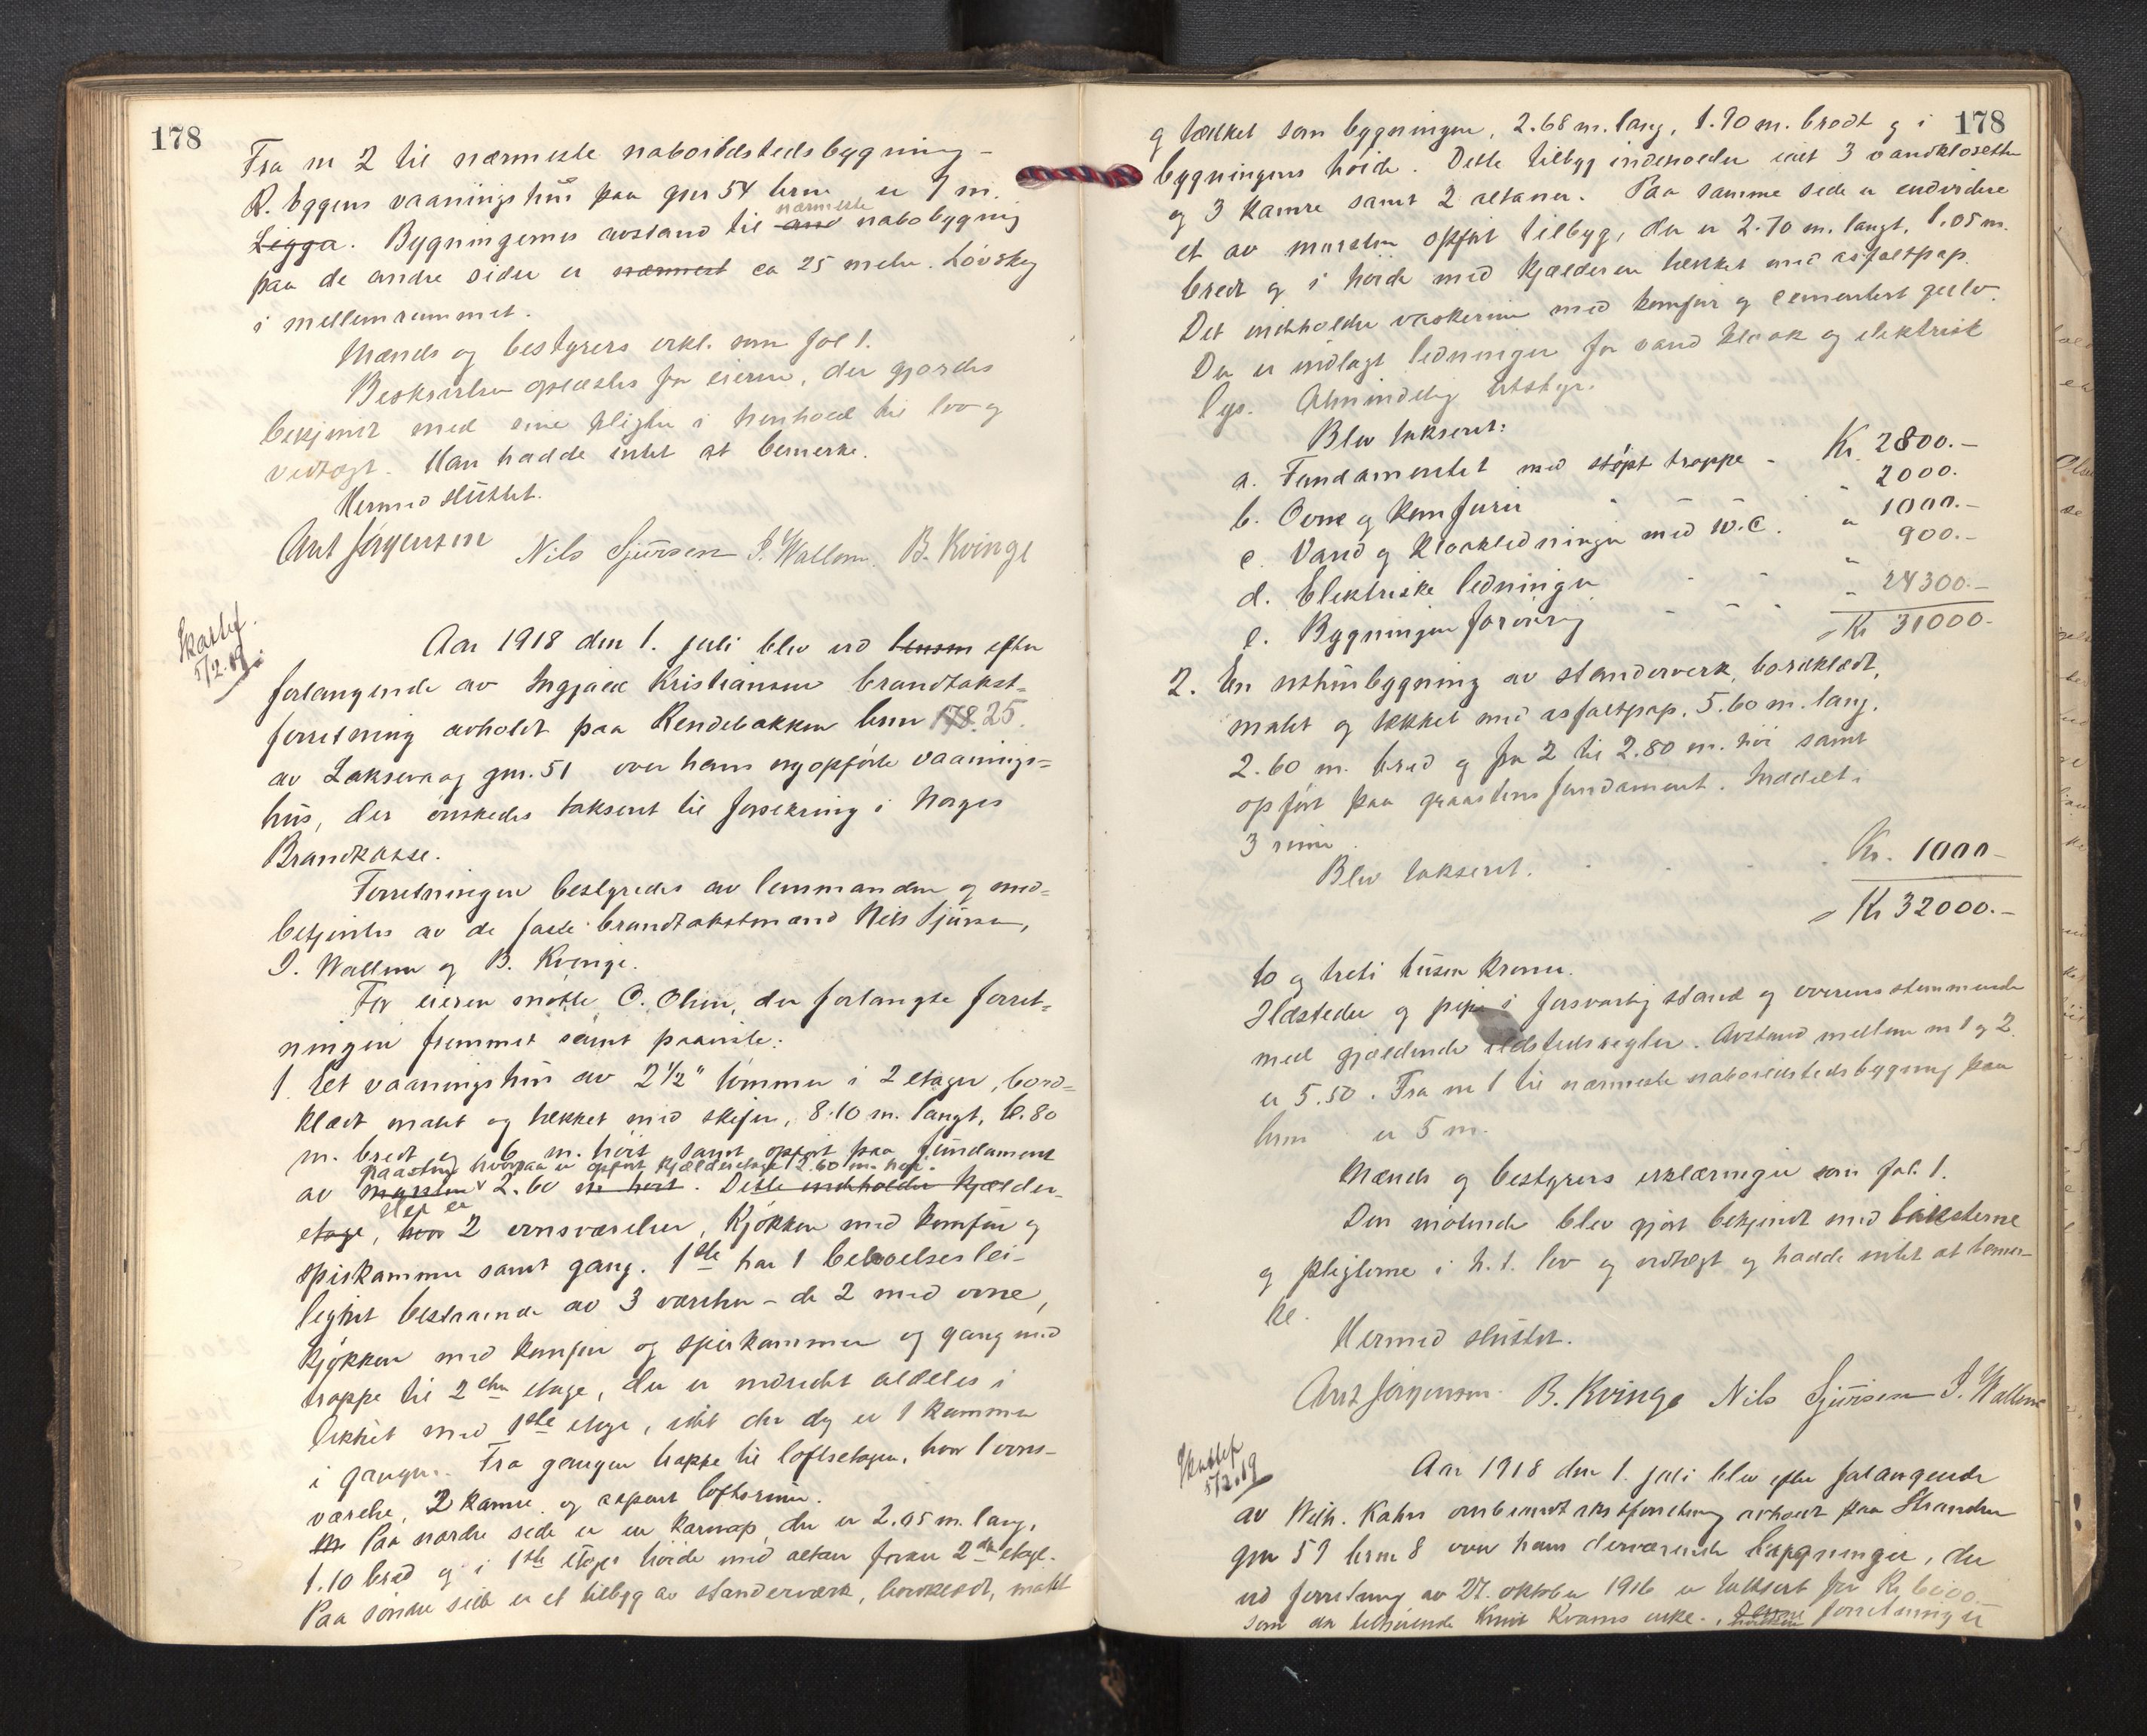 178
Fra nr 2 til nærmeste naboildstedsbygning –
R. Eggens vaaningshus paa gnr 54 brnr er 7 m.
Ligga. Bygningernes avstand til and nærmeste nabobygning
paa de andre sider er nærmest ca 25 meter. Løvskog
i mellemrummet.
Mænds og bestyrers erkl. som fol 1.
Beskrivelsen oplæstes for eieren, der gjordes
bekjendt med sine pligter i henhold til lov og
vedtægt. Han hadde intet at bemerke.
Hermed sluttet.
Ant Jørgensen Nils Sjursen I. Wallem. B. Kvinge
Skattef.
5/2.19
Aar 1918 den 1. juli blev ved lensm efter
forlangende av Ingjald Kristiansen brandtakst=
forretning avholdt paa Rendebakken brnr 178. 25.
av Laksevaag gnr. 51 over hans nyopførte vaanings=
hus, der ønskedes taksert til forsikring i Norges
Brandkasse.
Forretningen bestyredes av lensmanden og med=
betjentes av de faste brandtakstmænd Nils Sjursen,
I. Wallem og B. Kvinge.
For eieren møtte O. Olsen, der forlangte forret=
ningen fremmet samt paaviste:
1. Et vaaningshus av 2½" tømmer i 2 etager, bord=
klædt malet og tækket med skifer, 8.10 m. langt, 6.80
m. bredt og 6 m. høit samt opført paa fundament
graasten hvorpaa er opført kjælderetage 2.60 m. høi.
av mursten 2.60 m høit. Dette indeholder kjælder-
etage, hvor der er 2 ovnsværelser, kjøkken med komfur og
spiskammer samt gang. 1ste har 1 beboelseslei-
lighet bestaaende av 3 værelser – de 2 med ovne,
kjøkken med komfur og spiskammer og gang med
trappe til 2den etage, der er indredet aldeles i
likhet med 1ste etage, idet der dog er 1 kammer
i gangen. Fra gangen trappe til loftsetagen, hvor 1 ovns-
værelse, 2 kamre og aapent loftsrum.
En Paa nordre side er en karnap, der er 2.05 m. lang,
1.10 bred og i 1ste etages høide med altan foran 2den etage.
Paa søndre side er et tilbyg av standerværk, bordklædt, malt
178
og tækket som bygningen, 2.68 m. lang, 1.90 m. bredt og i
bygningens høide. Dette tilbyg indeholder ialt 3 vandklosetter
og 3 kamre samt 2 altaner. Paa samme side er endvidere
et av mursten opført tilbyg, der er 2.70 m. langt, 1.05 m.
bredt og i høide med kjælderen tækket med asfaltpap.
Det indeholder vaskerum med komfur og cementert gulv.
Der er indlagt ledninger for vand kloak og elektrisk
lys. Almindelig utstyr.
Blev taksert:
a. Fundamentet med støpt trappe - Kr. 2800.–
b. Ovne og komfurer - - " 2000.
c. Vand og kloakledninger med W.C. " 1000.–
d. Elektriske ledninger - - " 900.–
e. Bygningen forøvrig - - - " 24300.–
= Kr 31000.-
2. En uthusbygning av standerverk, bordklædt,
malet og tækket med asfaltpap. 5.60 m. lang,
2.60 m. bred og fra 2 til 2.80 m. høi samt
opført paa graastens fundament. Inddelt i
3 rum.
Blev taksert. - - - Kr. 1000–
= Kr 32000.–
to og treti tusen kroner.
Ildsteder og pipe i forsvarlig stand og overensstemmende
med gjældende ildstedsregler. Avstand mellem nr 1 og 2
er 5.50. Fra nr 1 til nærmeste naboildstedsbygning paa
brnr er 5 m.
Mænds og bestyrers erklæringer som fol. 1.
Den møtende blev gjort bekjendt med taksterne
og pligterne i h. t. lov og vedtægt og hadde intet at bemer-
ke.
Hermed sluttet.
Ant Jørgensen. B. Kvinge Nils Sjursen I. Wallem
Skattef
5/2.19
Aar 1918 den 1. juli blev efter forlangende
av Wilh. Kahrs ombrandtakstforretning avholdt paa Stranden
gnr 51 brnr 8 over hans derværende bygninger, der
ved forretning av 27. oktober 1916 er taksert for Kr. 6000.
som da tilhørende Knut Kvams enke. forretning er